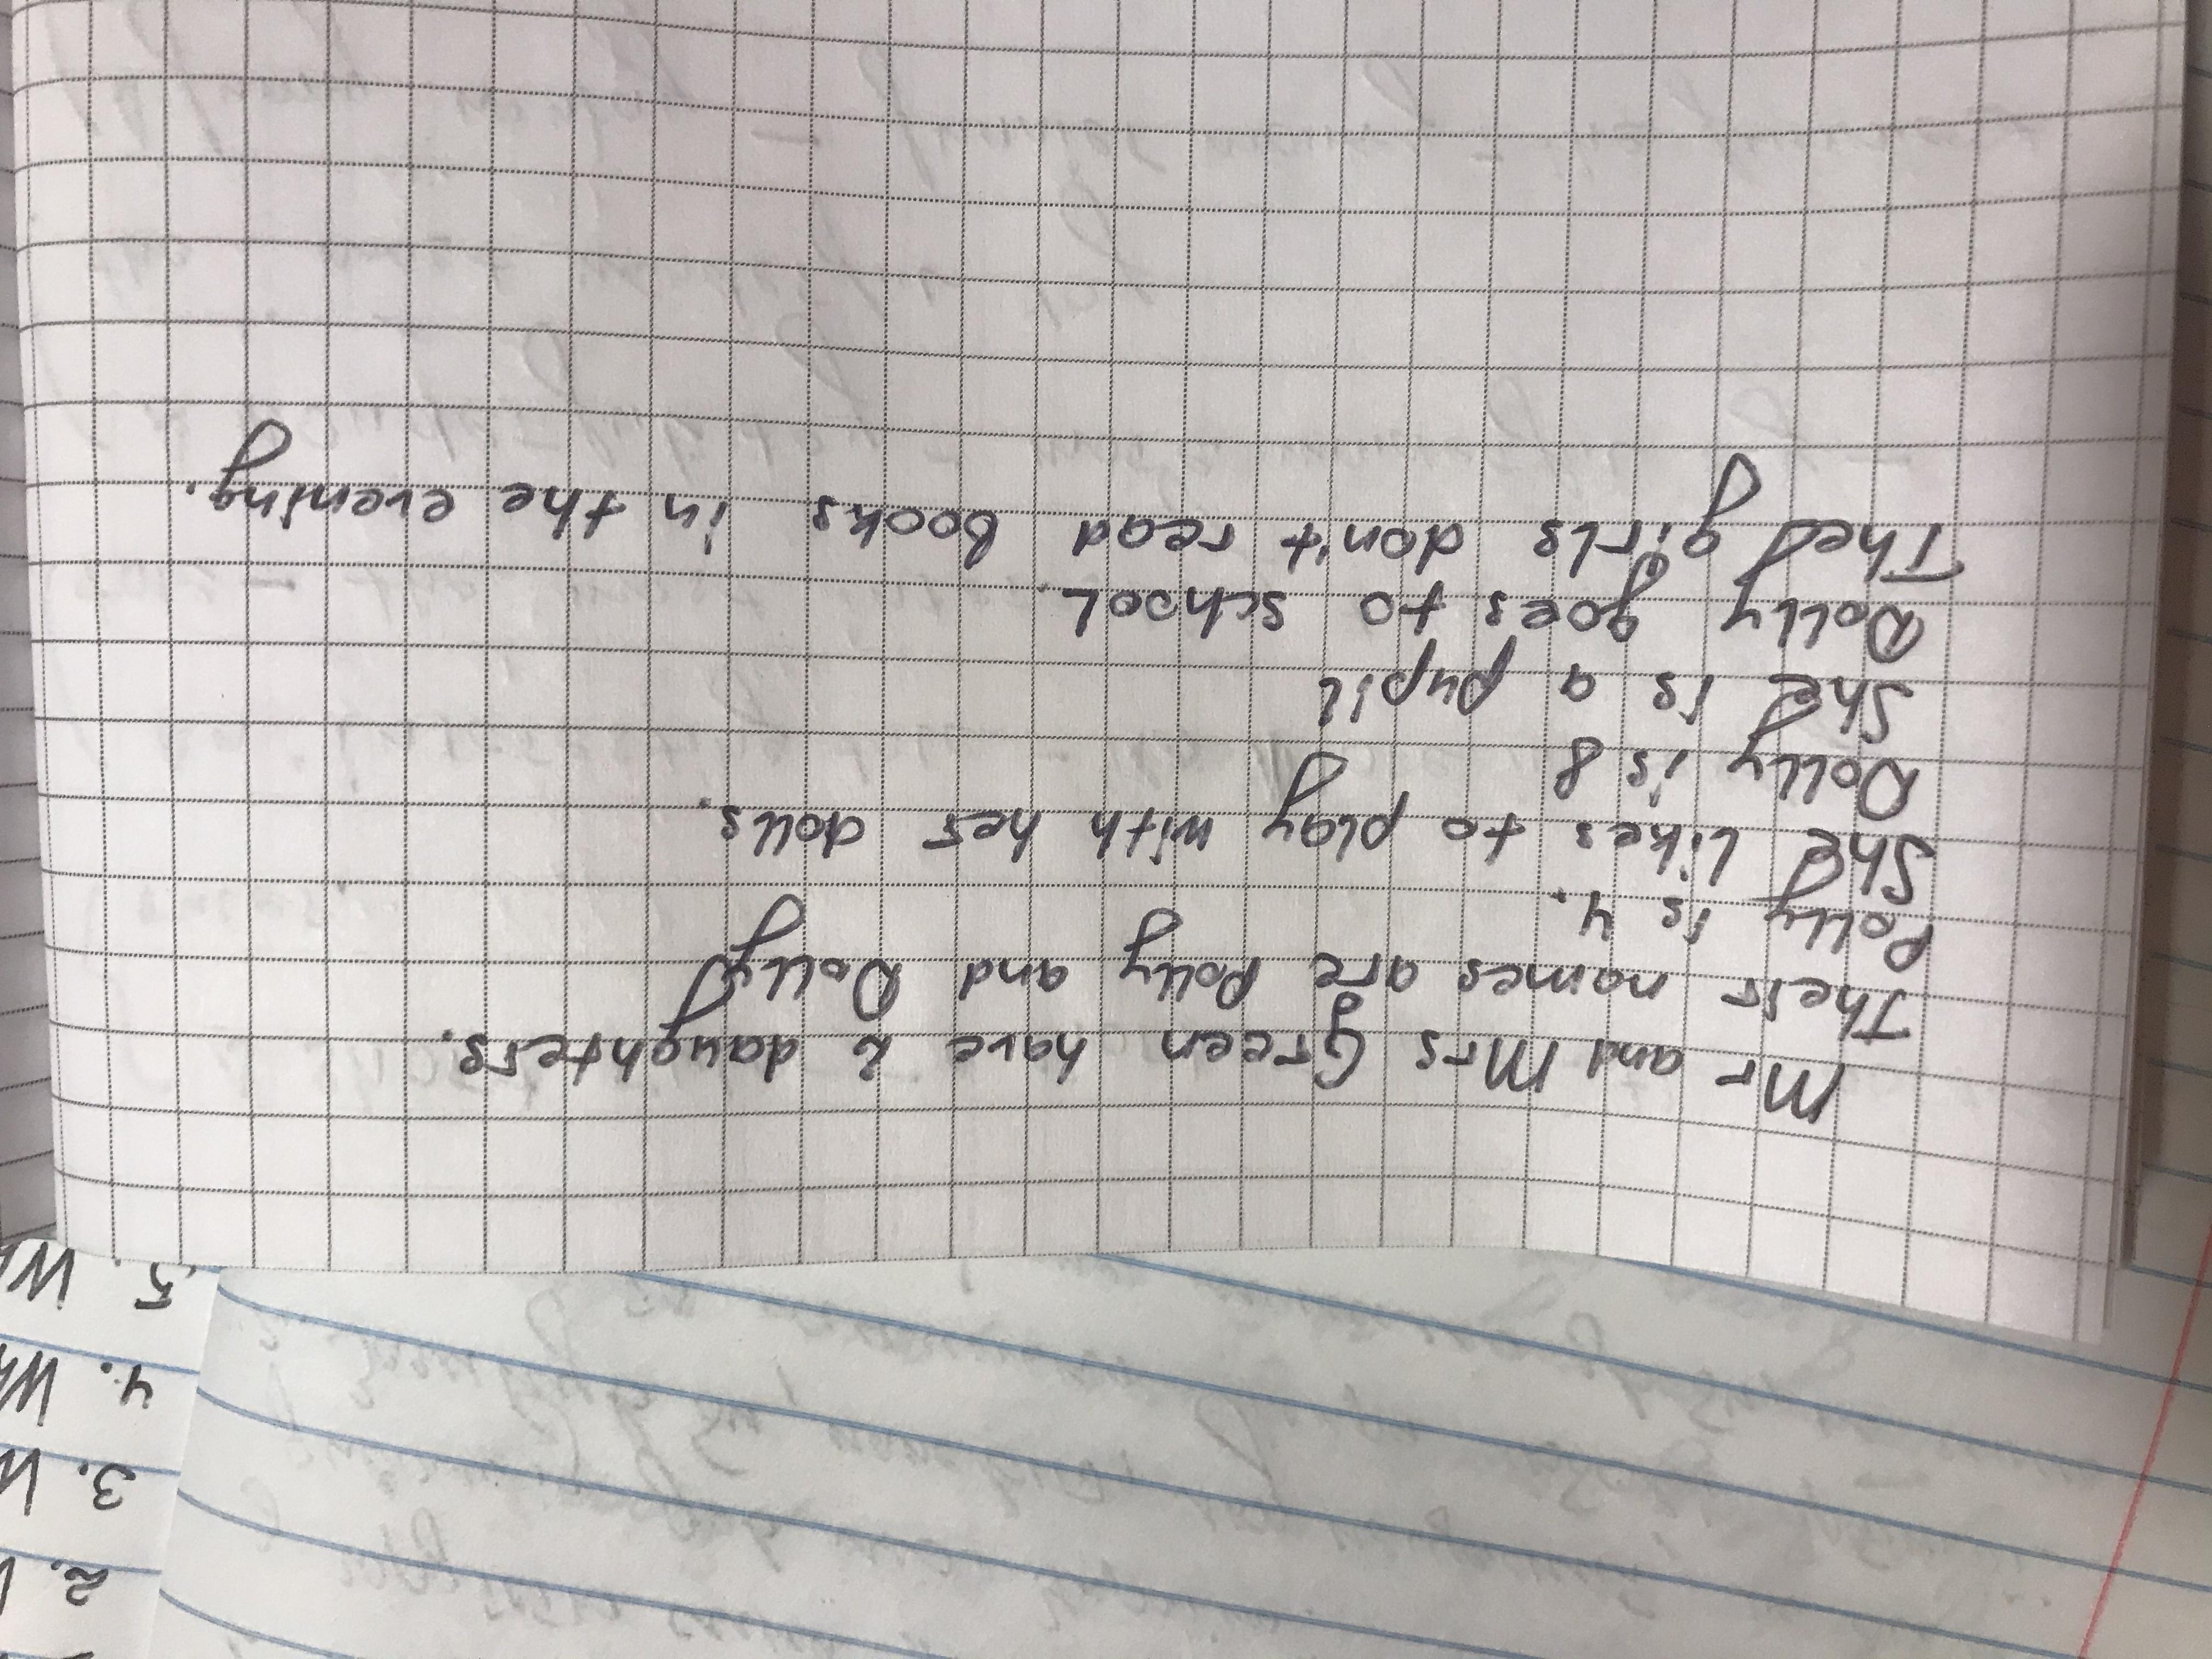 Mr and Mrs Green have 2 daughters.
Their names are Polly and Dolly
Polly is 4.
She likes to play with her dolls.
Dolly is 8
She is a pupil
Dolly goes to school
The girls don't read books in the evening.
2.
3. W
4. Wh
5. Wh